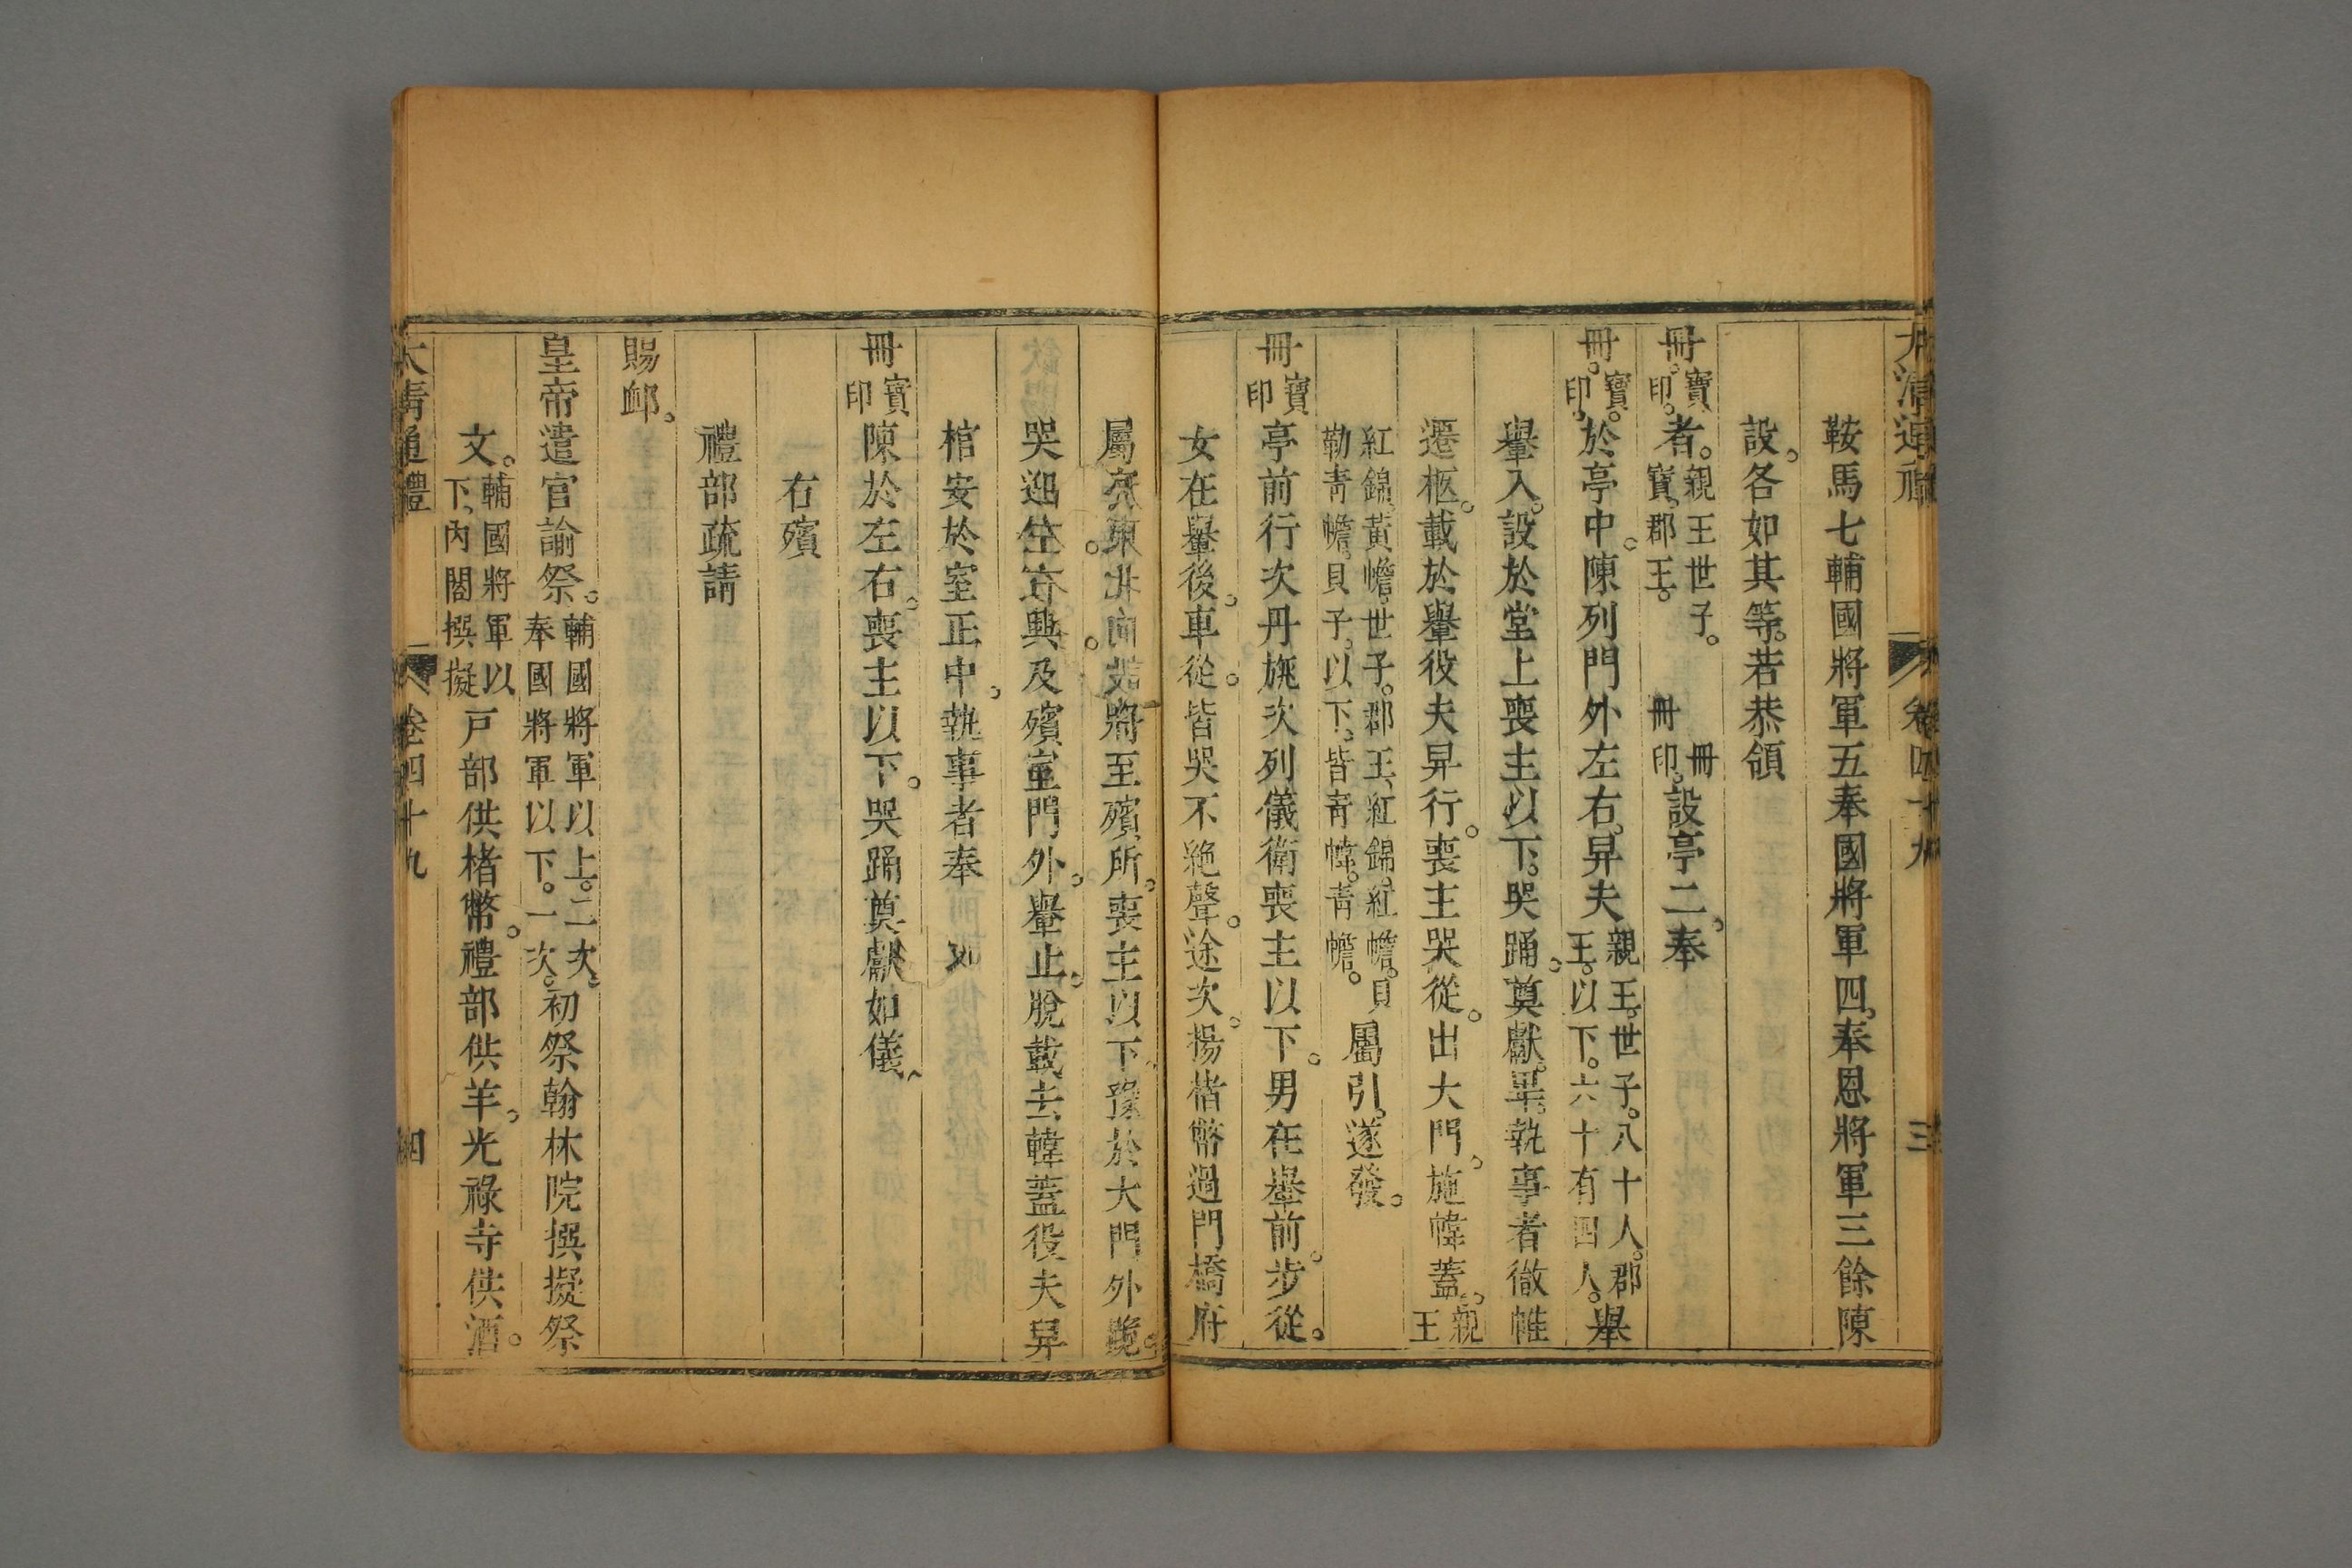 大清通禮 卷四十九 三
鞍馬七輔國將軍五奉國將軍四。奉恩將軍三餘陳
設。各如其等。若恭領
冊。寶。印。者。親王世子。寶。郡王。冊印。冊設亭二。奉
冊。寶。印。於亭中。陳列門外左右。舁夫親王。世子。八十人。郡王。以下。六十有四人。轝
轝入。設於堂上喪主以下。哭踊。奠獻。畢。執事者徹帷
遷柩。載於轝役夫舁行。喪主哭從。出大門。施幃蓋。親王
紅錦。黃幨。世子。郡王。紅錦。紅幨。貝勒靑幨。貝子。以下。皆靑幃。靑幨。屬引。遂發。
冊寶印亭前行次丹旐次列儀衛喪主以下。男在轝前。步從。
女在轝後。車從。皆哭不絶聲。途次。揚楮幣過門橋府
屬東北向將至殯所。喪主以下。豫於大門外跪。
哭迎興及殯室門外。轝止。脫載去幃蓋役夫舁
棺安於室正中。執事者奉
冊寶印陳於左右。喪主以下。哭踊奠獻如儀。
右殯
禮部疏請
賜卹。
皇帝遣官諭祭。輔國將軍以上。二次。奉國將軍以下。一次。初祭翰林院撰擬祭
文。輔國將軍以下。內閣撰擬戸部供楮幣。禮部供羊。光祿寺供酒。
大清通禮 卷四十九 四